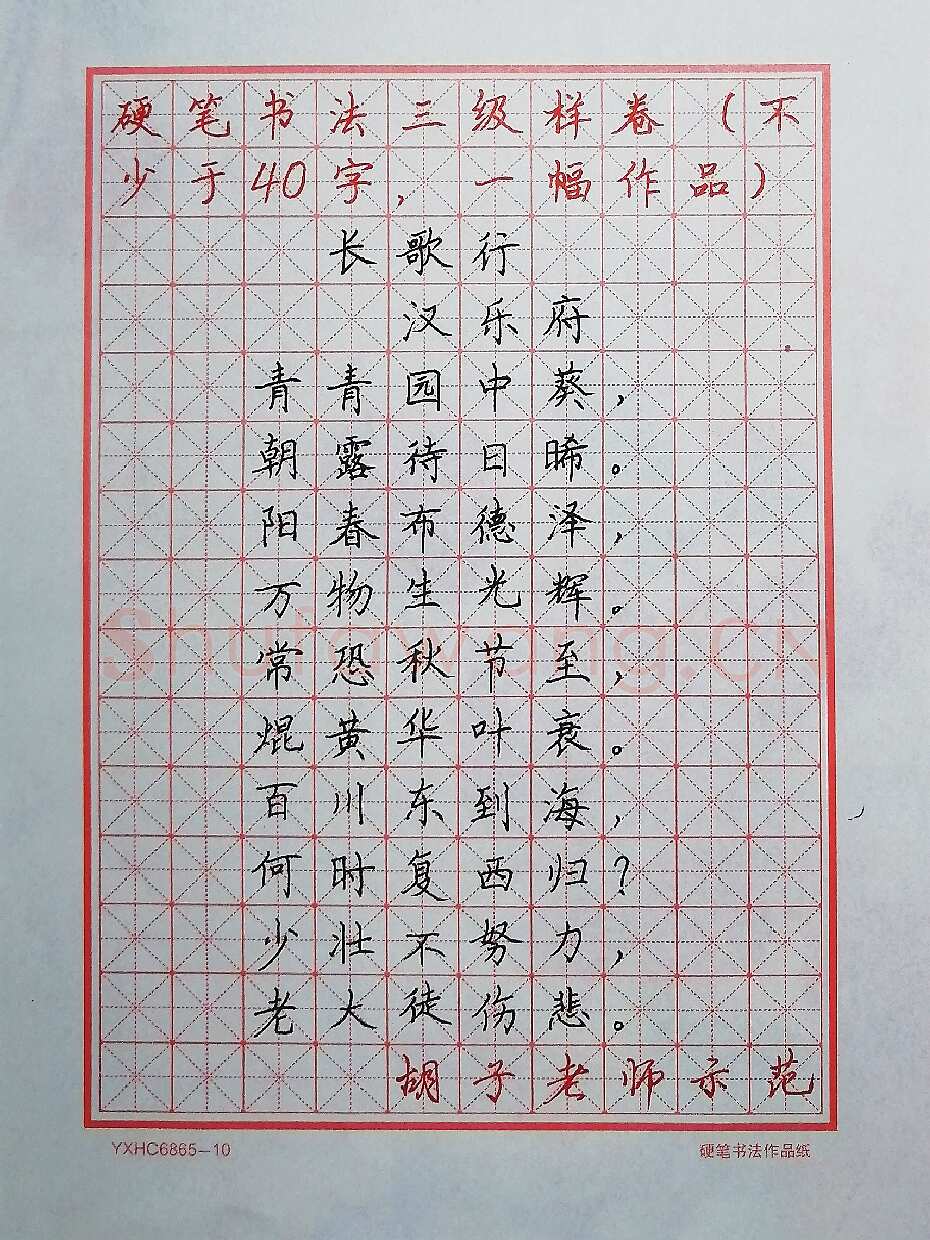 硬笔书法三级样卷（不
少于40字，一幅作品）
长歌行
汉乐府
青青园中葵，
朝露待日晞。
阳春布德泽，
万物生光辉。
常恐秋节至，
焜黄华叶衰。
百川东到海，
何时复西归？
少壮不努力，
老大徒伤悲。
胡子老师示范
YXHC6865-10
硬笔书法作品纸
Shufawang.CN